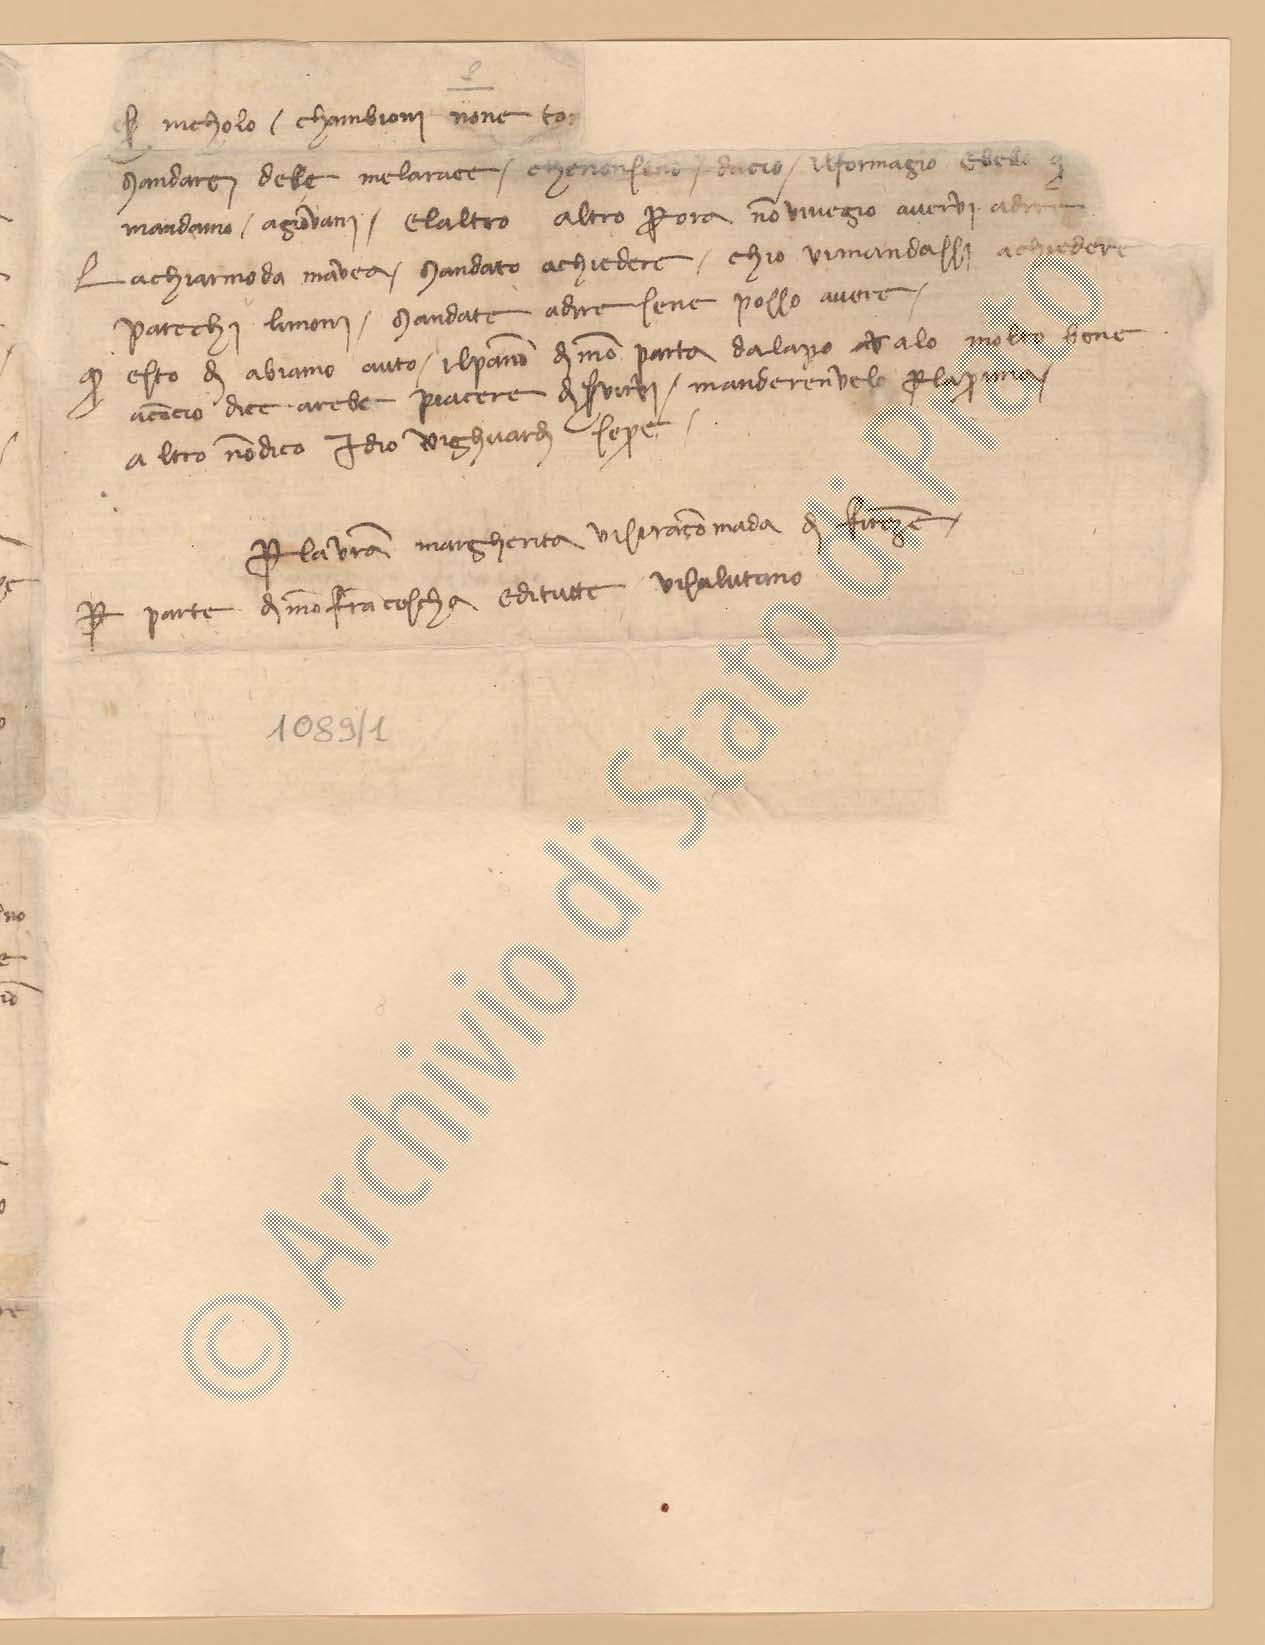 2
nicholo / chambioni none to
mandare debe melarance / chenonseno / dacio / ilformagio
mandamo / agiovani / Elaltro altro per ora nōvuegio avervi adire
Lachiarmoda māvea / mandato achiedere / chio vimandassi achiedere
patechi limoni / mandate adire sene posso avere /
questo dì abiamo auto / ilpano di mōo parta dalapo alo molto bene
acōcio dice arebe piacere di servirvi / manderenvelo per laprima /
altro nōdico Idio vighuardi sepre /
Per lavrā margherita visiracōmada di firēze /
Per parte di mōa fracescha editutte visalutano
1089/1
© Archivio di Stato di Prato